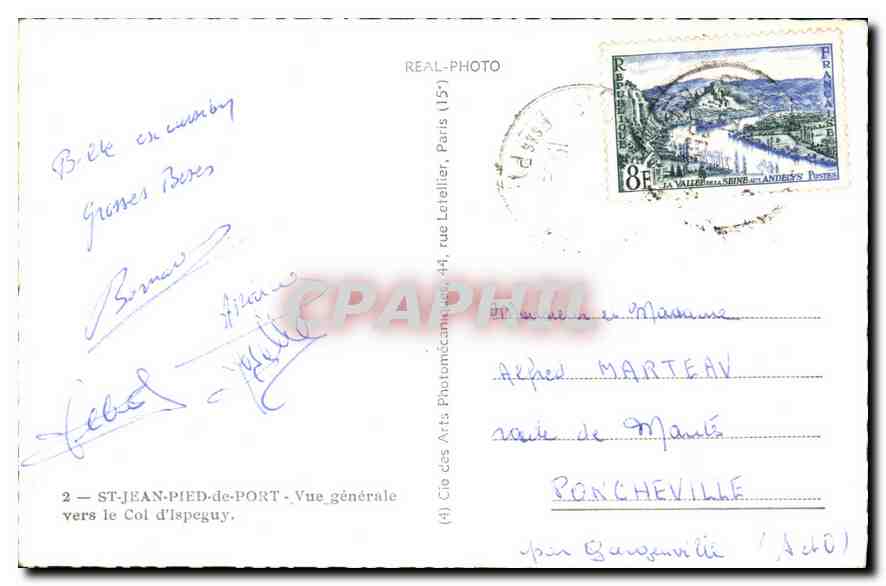 REAL-PHOTO
RÉPUBLIQUE FRANÇAISE
8F
LA VALLÉE DE LA SEINE AUX ANDELYS POSTES
excursion
Grosses Bises
Bernard
CPAPHIL
(4) Cie des Arts Photomécaniques, 44, rue Letellier, Paris (15e)
Monsieur et Madame
Alfred MARTEAU
route de
PONCHEVILLE
par Gargenville (S et O)
2 — ST-JEAN-PIED-de-PORT - Vue générale
vers le Col d'Ispeguy.